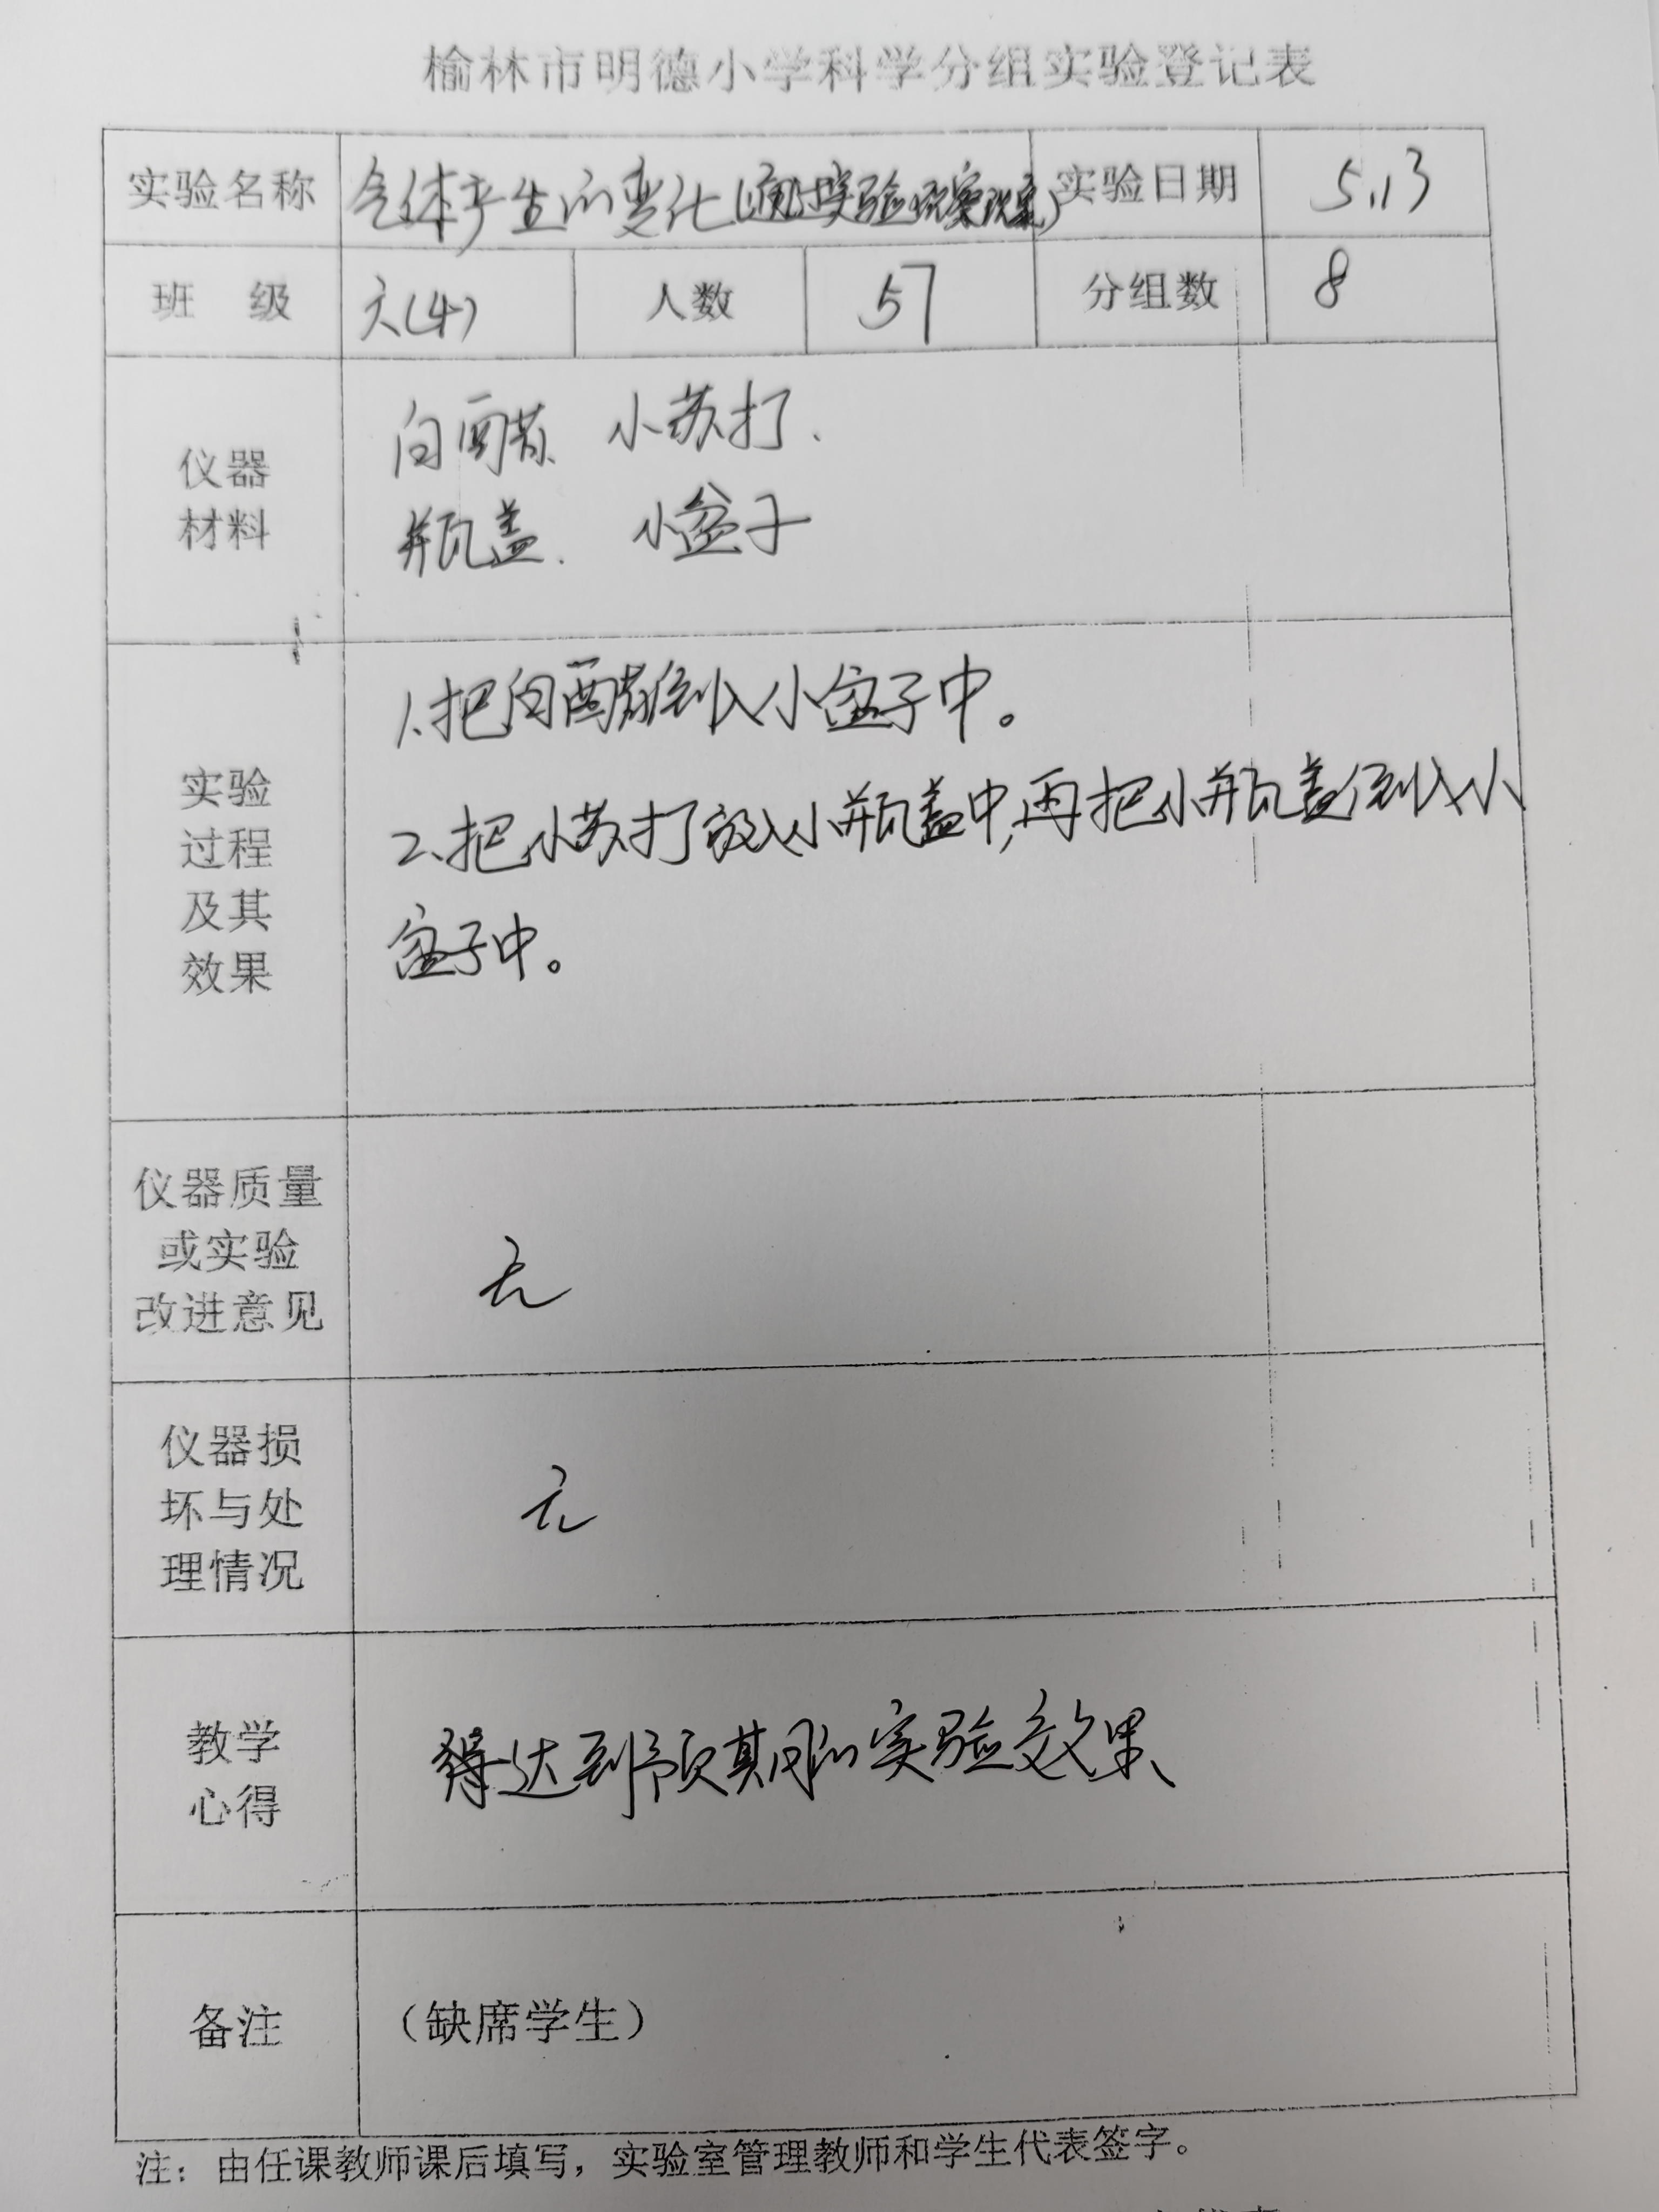 榆林市明德小学科学分组实验登记表
实验名称 气体产生的变化( 实验 实验日期 5.13
班 级 六(4) 人数 57 分组数 8
仪器
材料
白醋、小苏打.
瓶盖. 小盆子
实验
过程
及其
效果
1.把白醋倒入小盆子中。
2.把小苏打放入小瓶盖中,再把小瓶盖倒入小
盆子中。
仪器质量
或实验
改进意见
无
仪器损
坏与处
理情况
无
教学
心得
得达到预期的实验效果
备注 （缺席学生）
注：由任课教师课后填写，实验室管理教师和学生代表签字。